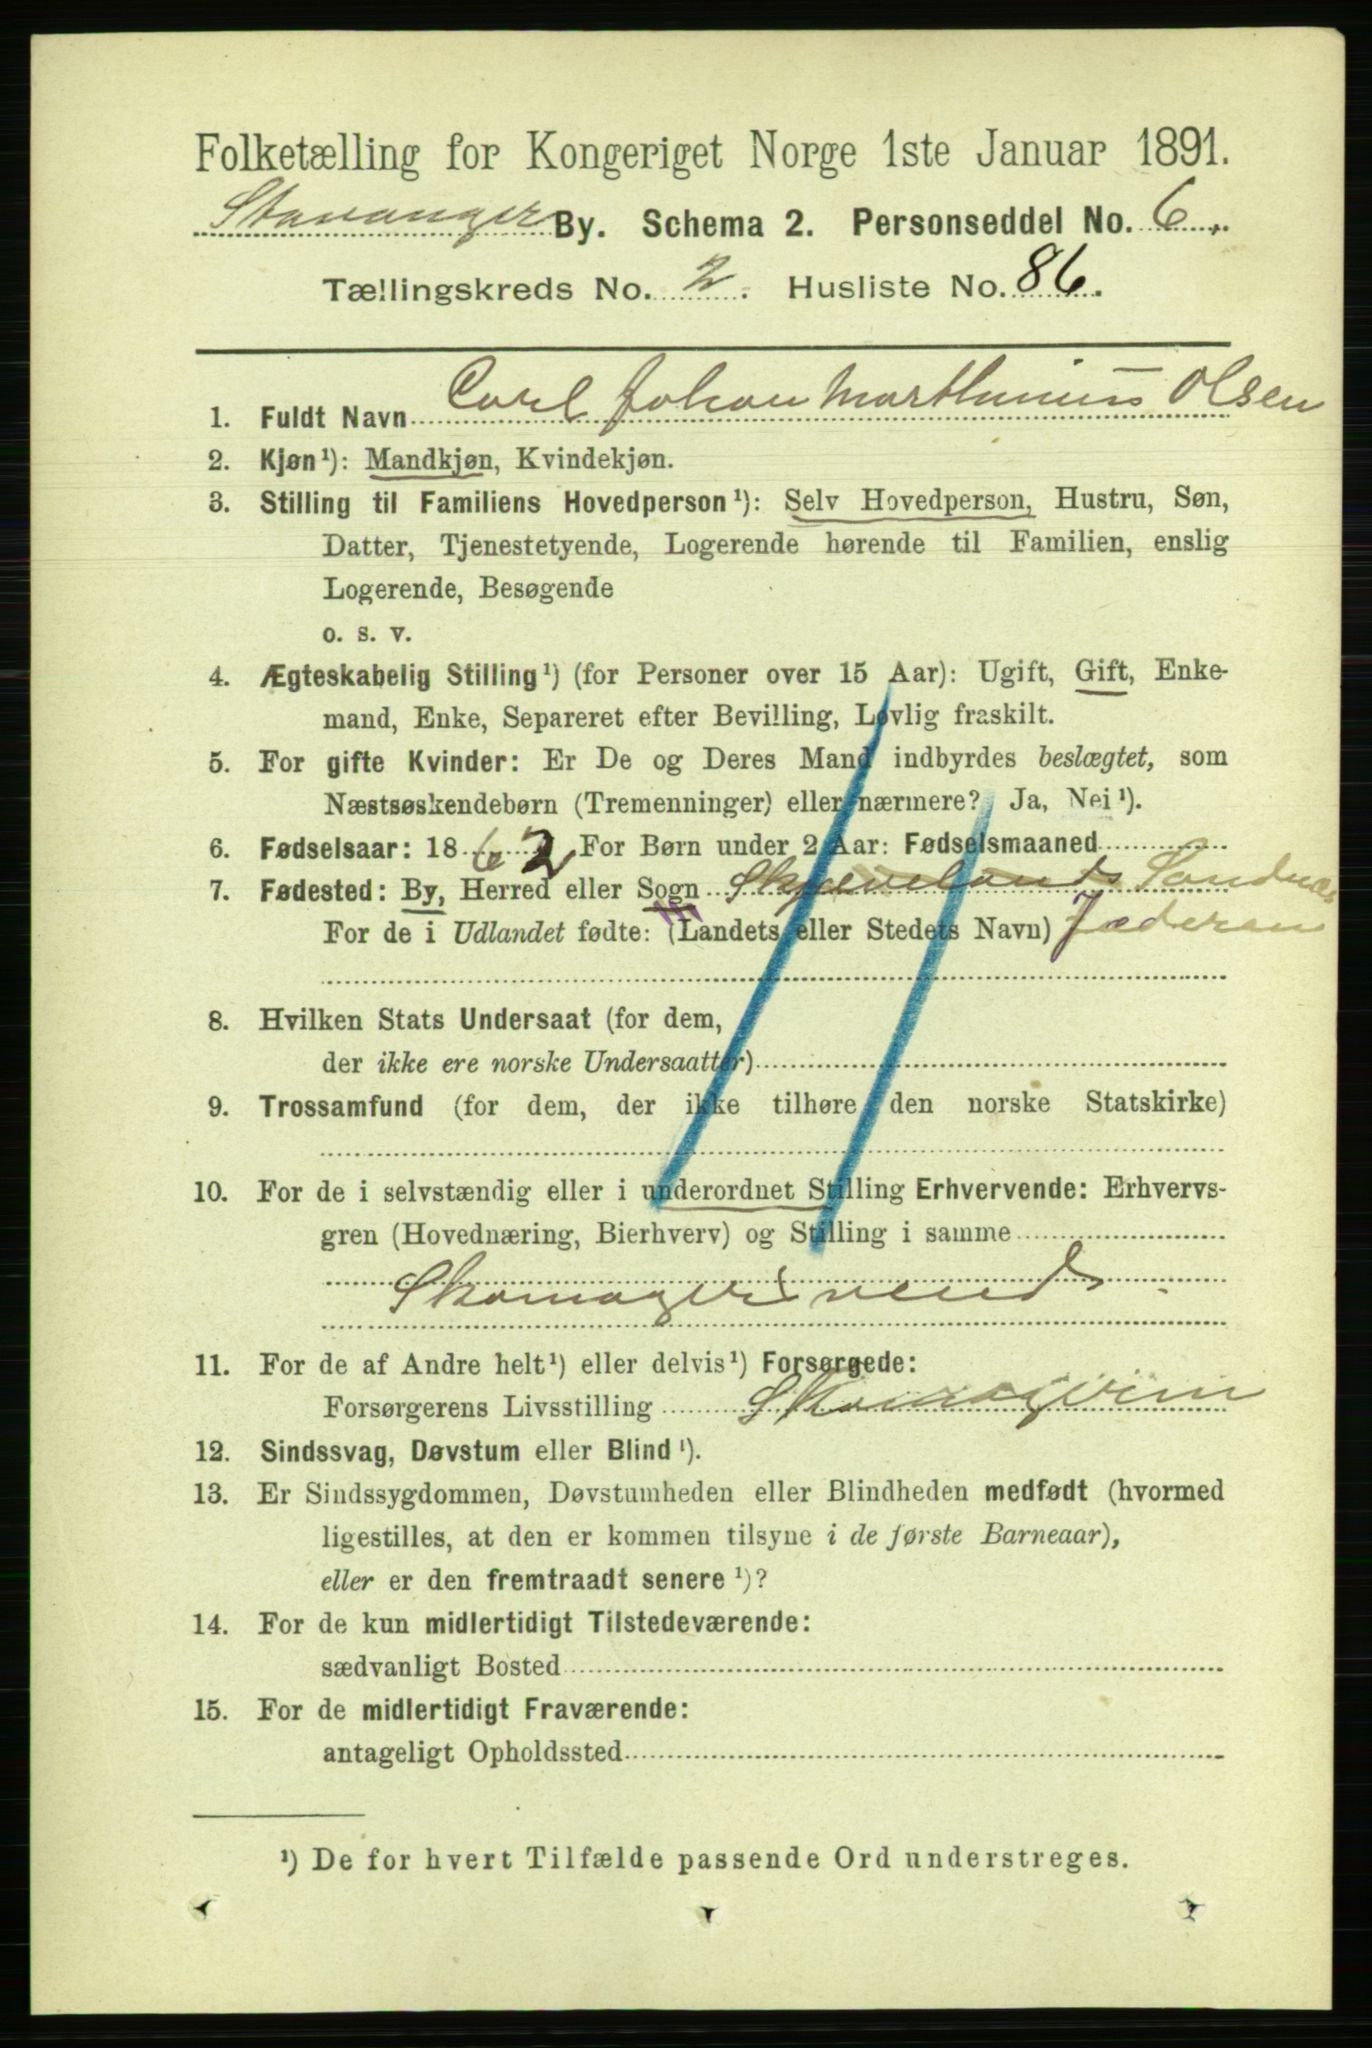 Folketælling for Kongeriget Norge 1ste Januar 1891.
Stavanger By. Schema 2. Personseddel No. 6.
Tællingskreds No. 2. Husliste No. 86.
1. Fuldt Navn Carl Johan Marthinius Olsen
2. Kjøn¹): Mandkjøn, Kvindekjøn.
3. Stilling til Familiens Hovedperson¹): Selv Hovedperson, Hustru, Søn,
Datter, Tjenestetyende, Logerende hørende til Familien, enslig
Logerende, Besøgende
o. s. v.
4. Ægteskabelig Stilling¹) (for Personer over 15 Aar): Ugift, Gift, Enke-
mand, Enke, Separeret efter Bevilling, Løvlig fraskilt.
5. For gifte Kvinder: Er De og Deres Mand indbyrdes beslægtet, som
Næstsøskendebørn (Tremenninger) eller nærmere? Ja, Nei¹).
6. Fødselsaar: 1862 For Børn under 2 Aar: Fødselsmaaned
7. Fødested: By, Herred eller Sogn Skjævelands Sandnæs
For de i Udlandet fødte: (Landets eller Stedets Navn) Jæderen
8. Hvilken Stats Undersaat (for dem,
der ikke ere norske Undersaatter)
9. Trossamfund (for dem, der ikke tilhøre den norske Statskirke)
10. For de i selvstændig eller i underordnet Stilling Erhvervende: Erhvervs-
gren (Hovednæring, Bierhverv) og Stilling i samme
Skomagersvend.
11. For de af Andre helt¹) eller delvis¹) Forsørgede:
Forsørgerens Livsstilling
12. Sindssvag, Døvstum eller Blind¹).
13. Er Sindssygdommen, Døvstumheden eller Blindheden medfødt (hvormed
ligestilles, at den er kommen tilsyne i de første Barneaar),
eller er den fremtraadt senere¹)?
14. For de kun midlertidigt Tilstedeværende:
sædvanligt Bosted
15. For de midlertidigt Fraværende:
antageligt Opholdssted
¹) De for hvert Tilfælde passende Ord understreges.